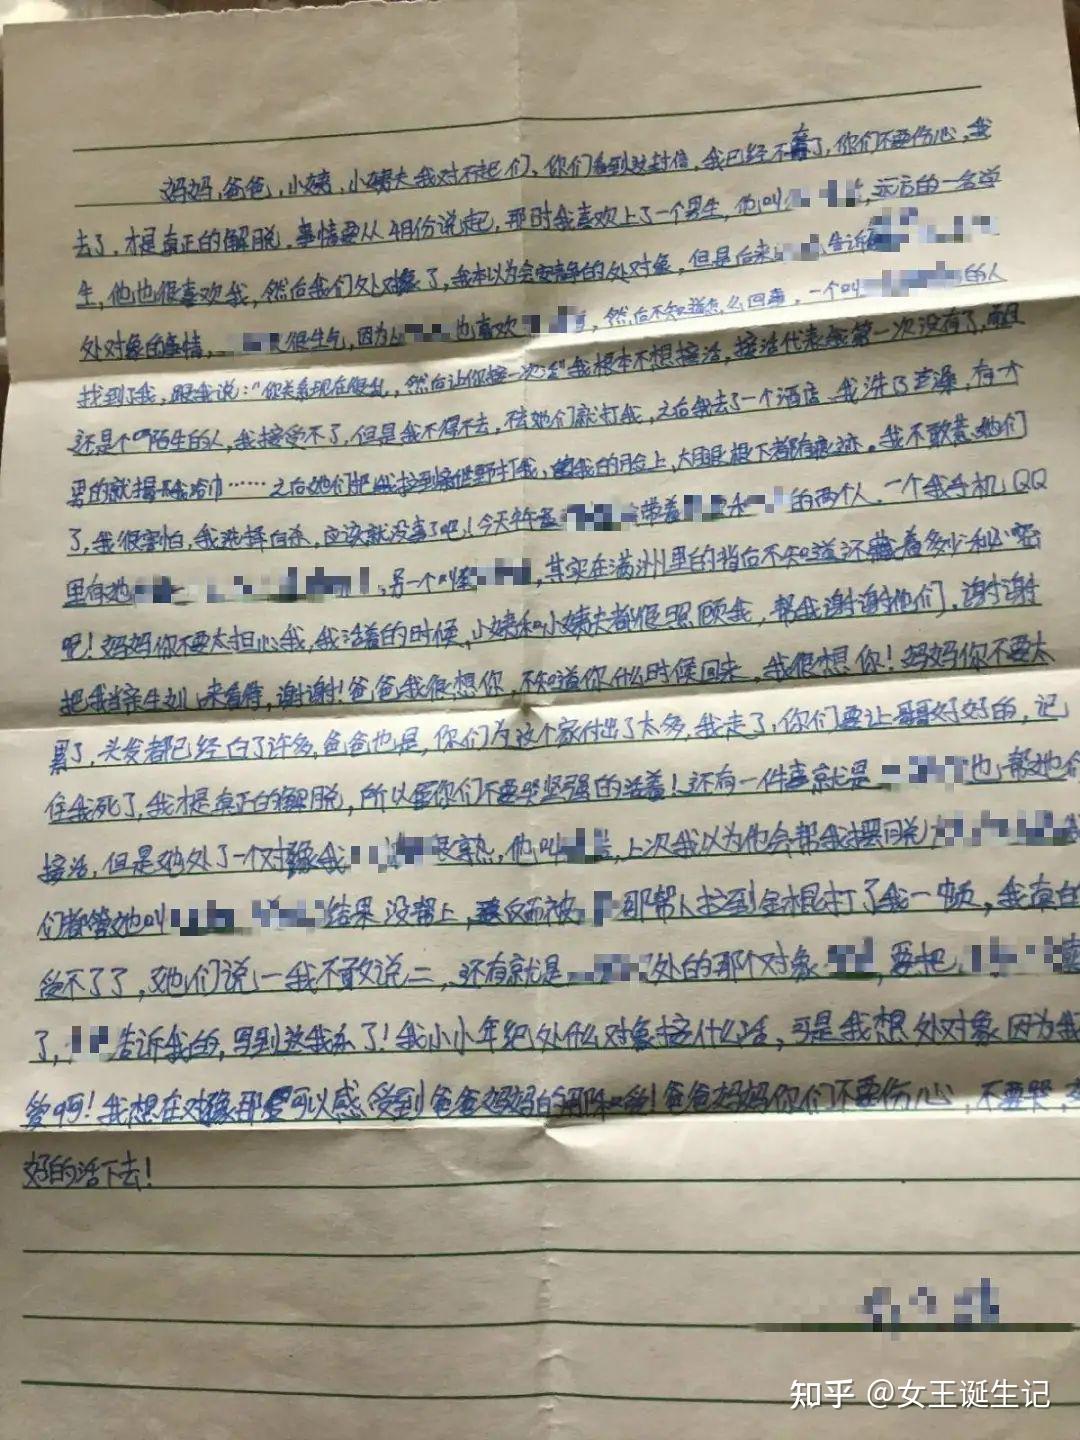 妈妈,爸爸,小姨,小姨夫我对不起们、你们看到这封信,我已经不在了,你们不要伤心,我
去了,才是真正的解脱,事情要从4月份说起,那时我喜欢上了一个男生,他叫,远方的一名学
生,他也很喜欢我,然后我们处对象了,我本以为会安静的处对象,但是后来告诉
处对象的事情,很生气,因为也喜欢,然后不知道怎么回事,一个叫的人
找到了我,跟我说:"你关系现在很乱,然后让你接一次活"我根本不想接活,接活代表我第一次没有了,而且
还是个陌生的人,我接受不了,但是我不得不去,不去她们就打我,之后我去了一个酒店、我洗了洗澡,有个
男的就揭我浴巾……之后她们把我拉到打我,我的脸上,大腿根下都有痕迹。我不敢惹她们
了,我很害怕,我选择自杀,应该就没事了吧!今天带着和的两个人、一个我手机QQ
里有她,另一个叫,其实在满州里的背后不知道还藏着多少秘密
吧!妈妈你不要太担心我,我活着的时候,小姨和小姨夫都很照顾我,帮我谢谢他们,谢谢
把我当亲生来看待,谢谢!爸爸我很想你,不知道你什么时候回来,我很想你!妈妈你不要太
累了,头发都已经白了许多,爸爸也是,你们为这个家付出了太多,我走了,你们要让哥哥好好的,记
住我死了,我才是真正的解脱,所以你们不要哭坚强的活着!还有一件事就是也帮她们
接活,但是她处了一个对象我很熟,他叫,上次我以为他会帮我摆脱
们都管她叫结果没帮上,反而被那帮人拉到金棍打了我一顿,我真的
受不了了,她们说一我不敢说二,还有就是处的那个对象,要把
了,告诉我的,写到这我哭了!我小小年纪处什么对象接什么活,可是我想处对象因为我
爱啊!我想在对象那可以感受到爸爸妈妈的那种爱!爸爸妈妈你们不要伤心,不要哭,
好的活下去!
知乎 @女王诞生记